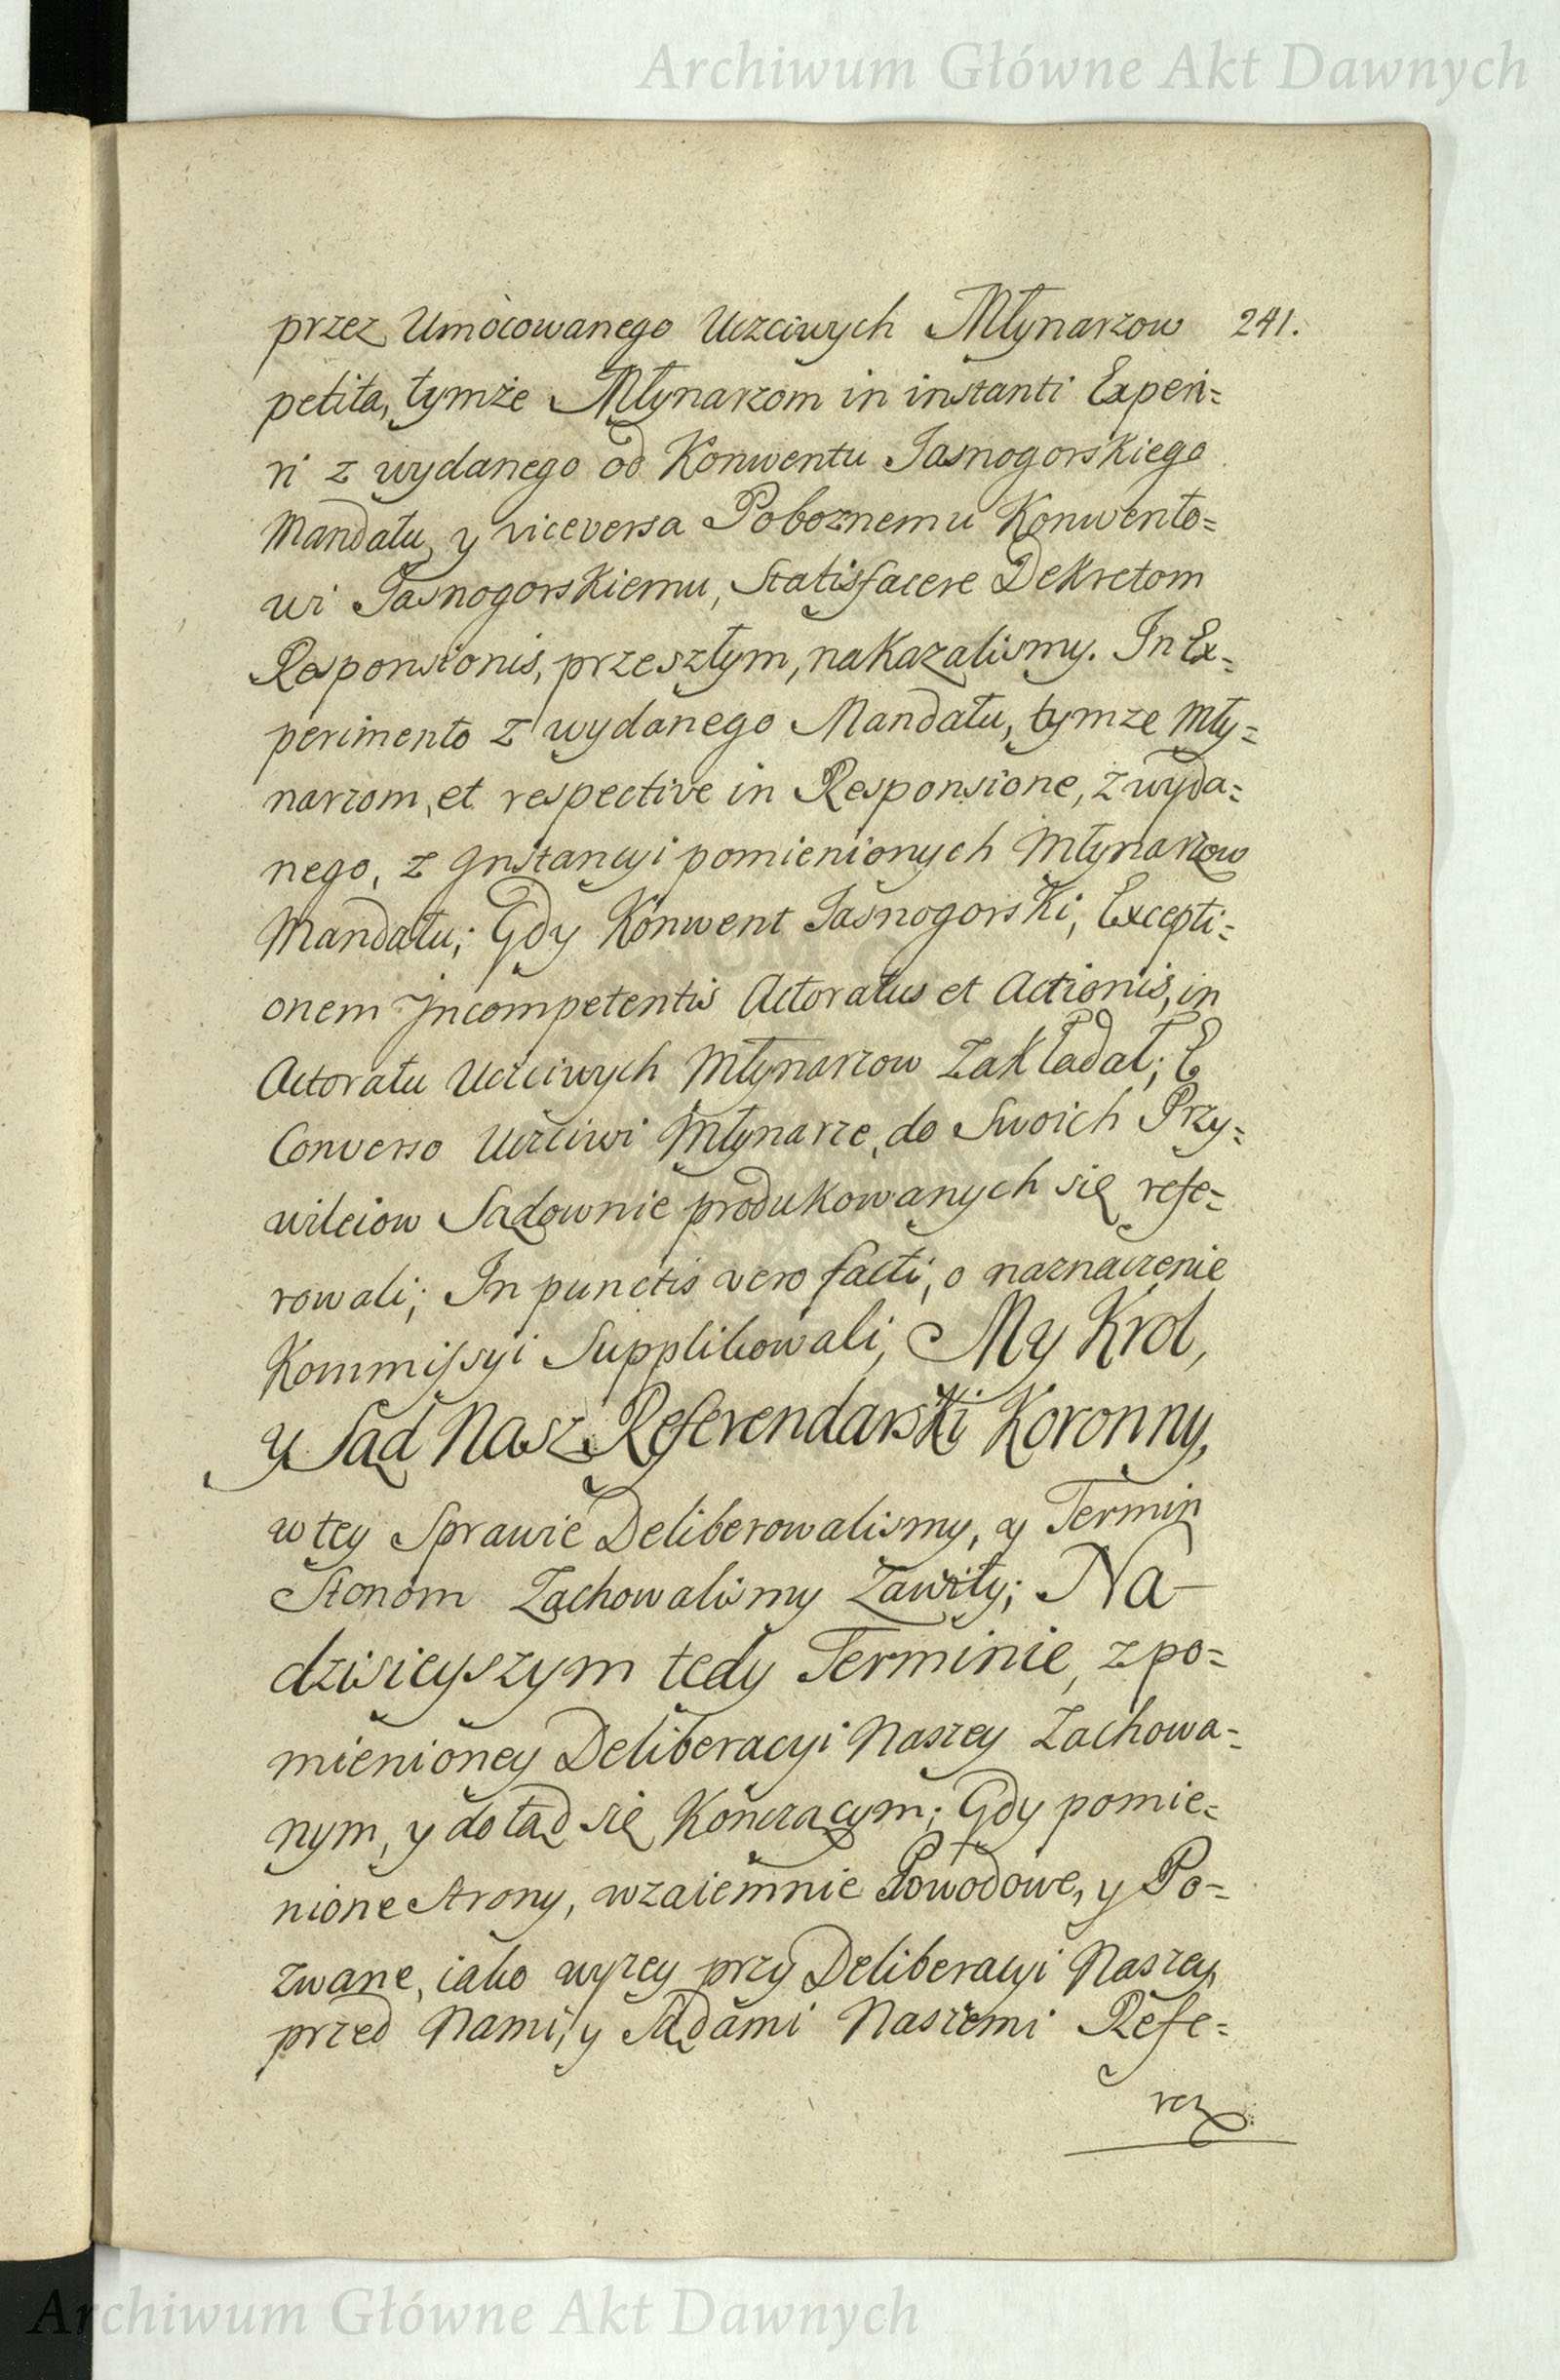 Archiwum Główne Akt Dawnych
przez Umocowanego Uczciwych Młynarzow 241.
petita, tymże Młynarzom in instanti Experi=
ri z wydanego od Konwentu Jasnogorskiego
Mandatu, y viceversa Poboznemu Konwento=
wi Jasnogorskiemu, Statisfacere Dekretom
Responsionis, przeszłym, nakazalismy. In Ex=
perimento z wydanego Mandatu, tymze Mły=
narzom, et respective in Responsione, z wyda=
nego, z Jnstancyi pomienionych Młynarzow
Mandatu; Gdy Konwent Jasnogorski, Excepti=
onem Jncompetentis Actoratus et Actionis, in
Actoratu Uczciwych Młynarzow Zakładał; E
Converso Uczciwi Młynarze, do Swoich Przy=
wileiow Sądownie produkowanych się refe=
rowali; In punctis vero facti, o naznaczenie
Kommissyi Supplikowali; My Krol,
y Sąd Nasz Referendarski Koronny,
w tey Sprawie Deliberowalismy, y Termin
Stonom Zachowalismy Zawity; Na-
dzisieyszym tedy Terminie, z po=
mienioney Deliberacyi Naszey Zachowa=
nym, y dotąd się Kończącym; Gdy pomie=
nione Strony, wzaiemnie Powodowe, y Po=
zwane, iako wyzey przy Deliberacyi Naszey,
przed Nami, y Sądami Naszemi Refe=
ren
Archiwum Główne Akt Dawnych